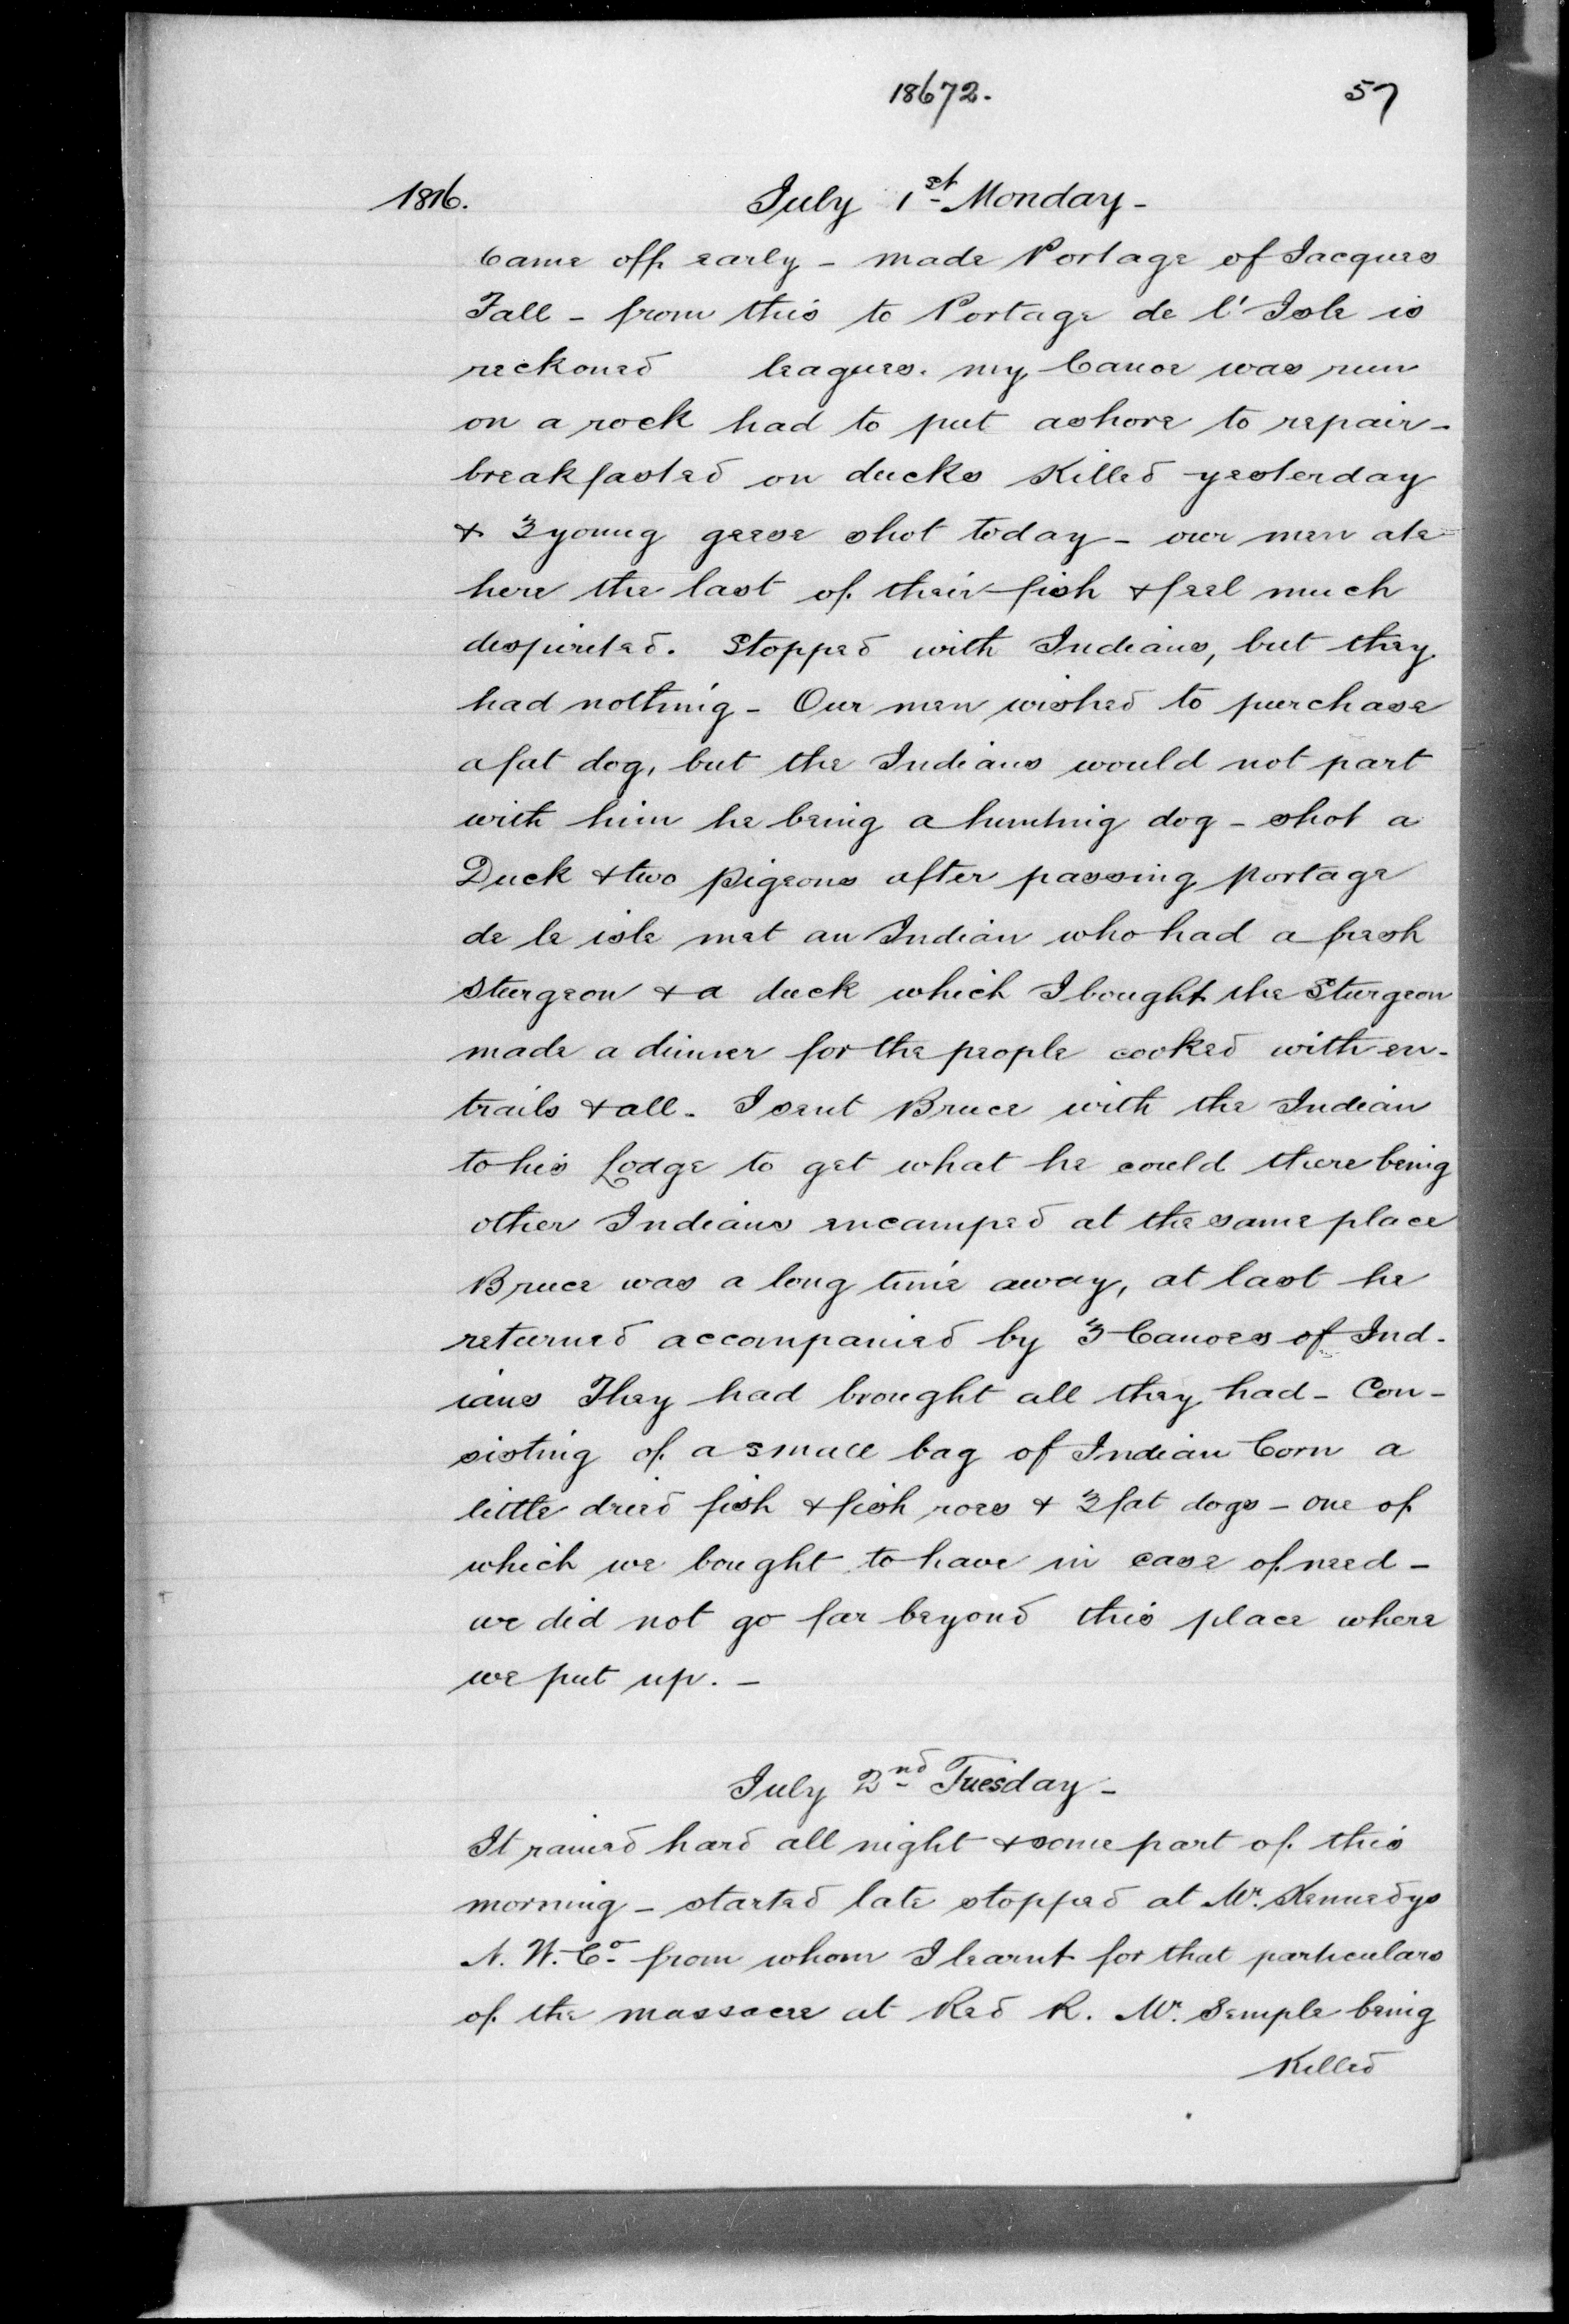 18672.
57
1816.
July 1st Monday -
Came off early - made Portage of Jacques
Fall - from this to Portage de l' Isle is
reckoned leagues. my Canoe was run
on a rock had to put ashore to repair -
breakfasted on ducks Killed yesterday
& 3 young geese shot today - our men ate
here the last of their fish & feel much
dispirited. Stopped with Indians, but they
had nothing - Our men wished to purchase
a fat dog, but the Indians would not part
with him he being a hunting dog - shot a
Duck & two pigeons after passing portage
de le isle met an Indian who had a fresh
Sturgeon & a duck which I bought the Sturgeon
made a dinner for the people cooked with en-
trails & all - I sent Bruce with the Indian
to his Lodge to get what he could there being
other Indians encamped at the same place
Bruce was a long time away, at last he
returned accompanied by 3 Canoes of Ind-
ians They had brought all they had - Con-
sisting of a small bag of Indian Corn a
little dried fish & fish roes & 3 fat dogs - one of
which we bought to have in case of need -
we did not go far beyond this place where
we put up. -
July 2nd Tuesday -
It rained hard all night & some part of this
morning - started late stopped at Mr. Kennedys
N. W. Co from whom I learnt for that particulars
of the massacre at Red R. Mr. Semple being
Killed